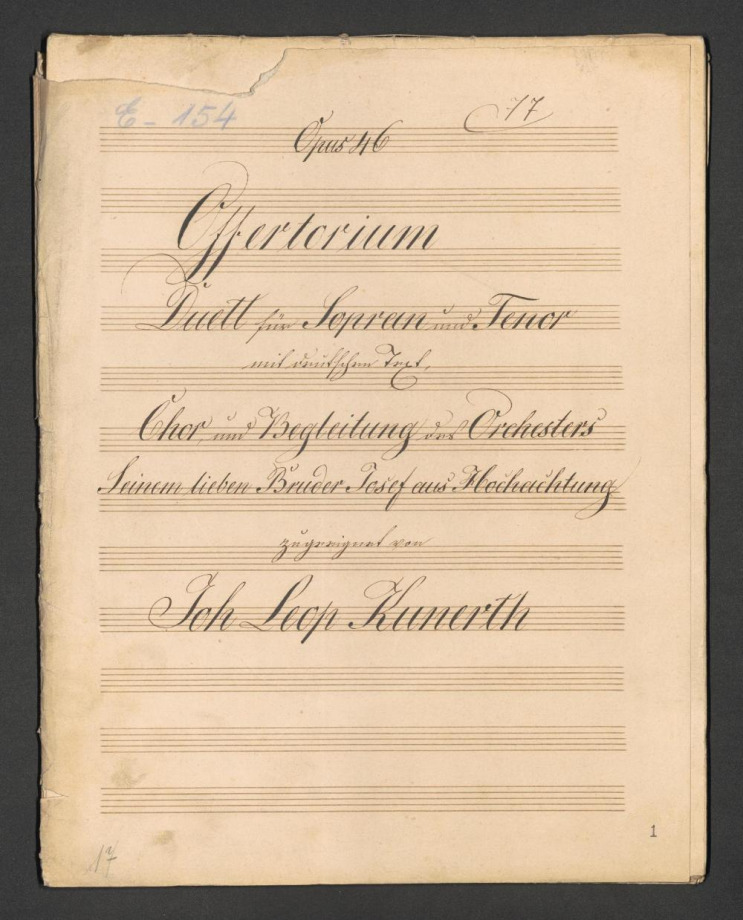 E - 154
17
Opus 46
Offertorium
Duett für Sopran und Tenor
mit deutschen Text,
Chor, und Begleitung des Orchesters
Seinem lieben Bruder Josef aus Hochachtung
zugeeignet von
Joh Leop Kunerth
1
17